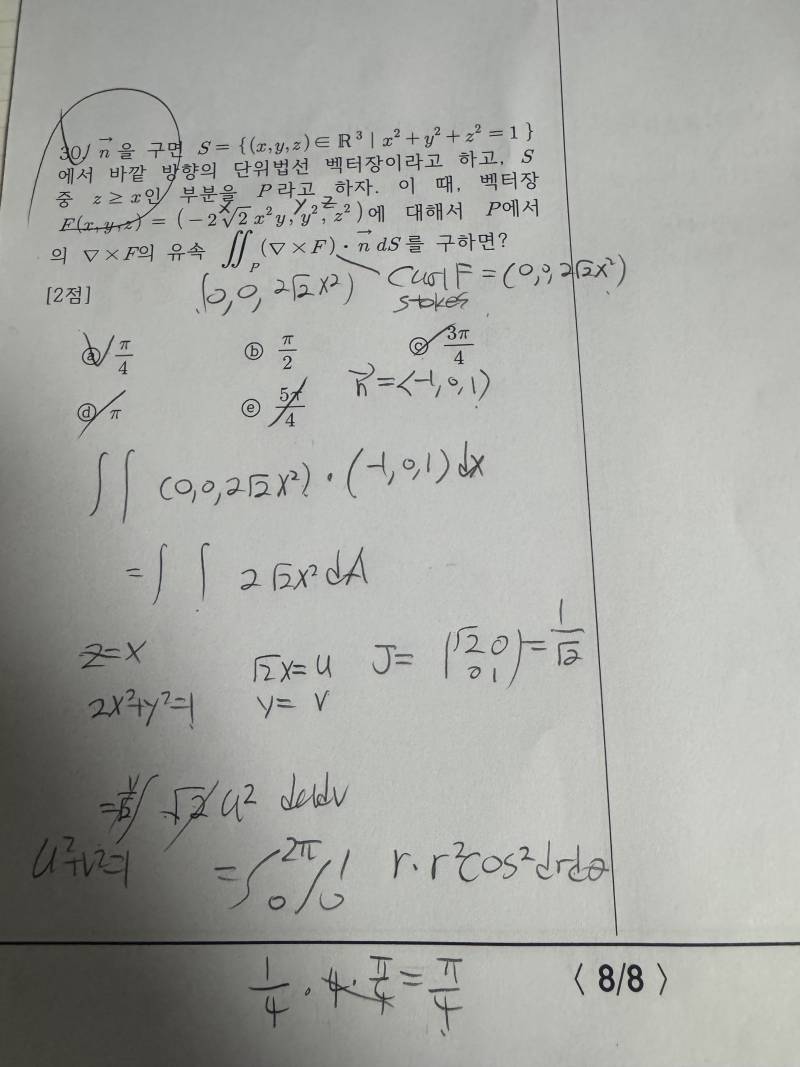 30. $\vec{n}$을 구면 $S=\{(x,y,z)\in\mathbb{R}^3 \mid x^2+y^2+z^2=1\}$
에서 바깥 방향의 단위법선 벡터장이라고 하고, $S$
중 $z \geq x$인 부분을 $P$라고 하자. 이 때, 벡터장
x y z
$F(x,y,z)=(-2\sqrt[3]{2}x^2y, y^2, z^2)$에 대해서 $P$에서
의 $\nabla\times F$의 유속 $\iint_P (\nabla\times F)\cdot\vec{n}\,dS$를 구하면?
[2점]
(0, 0, 2√2x²) Curl F = (0, 0, 2√2x²)
stokes
ⓐ π/4 ⓑ π/2 ⓒ 3π/4
$\vec{n}$ = <-1, 0, 1>
ⓓ π ⓔ 5π/4
∫∫ (0, 0, 2√2x²) · (-1, 0, 1) dx
= ∫ ∫ 2√2x² dA
z=x √2x=u J= |√2 0 0 1| = 1/√2
2x²+y²=1 y= v
= 1/√2 ∫ √2 u² dudv
u²+v²=1 = ∫₀^2π ∫₀^1 r·r²cos² dr dθ
1/4 · 4 · π/4 = π/4
〈 8/8 〉